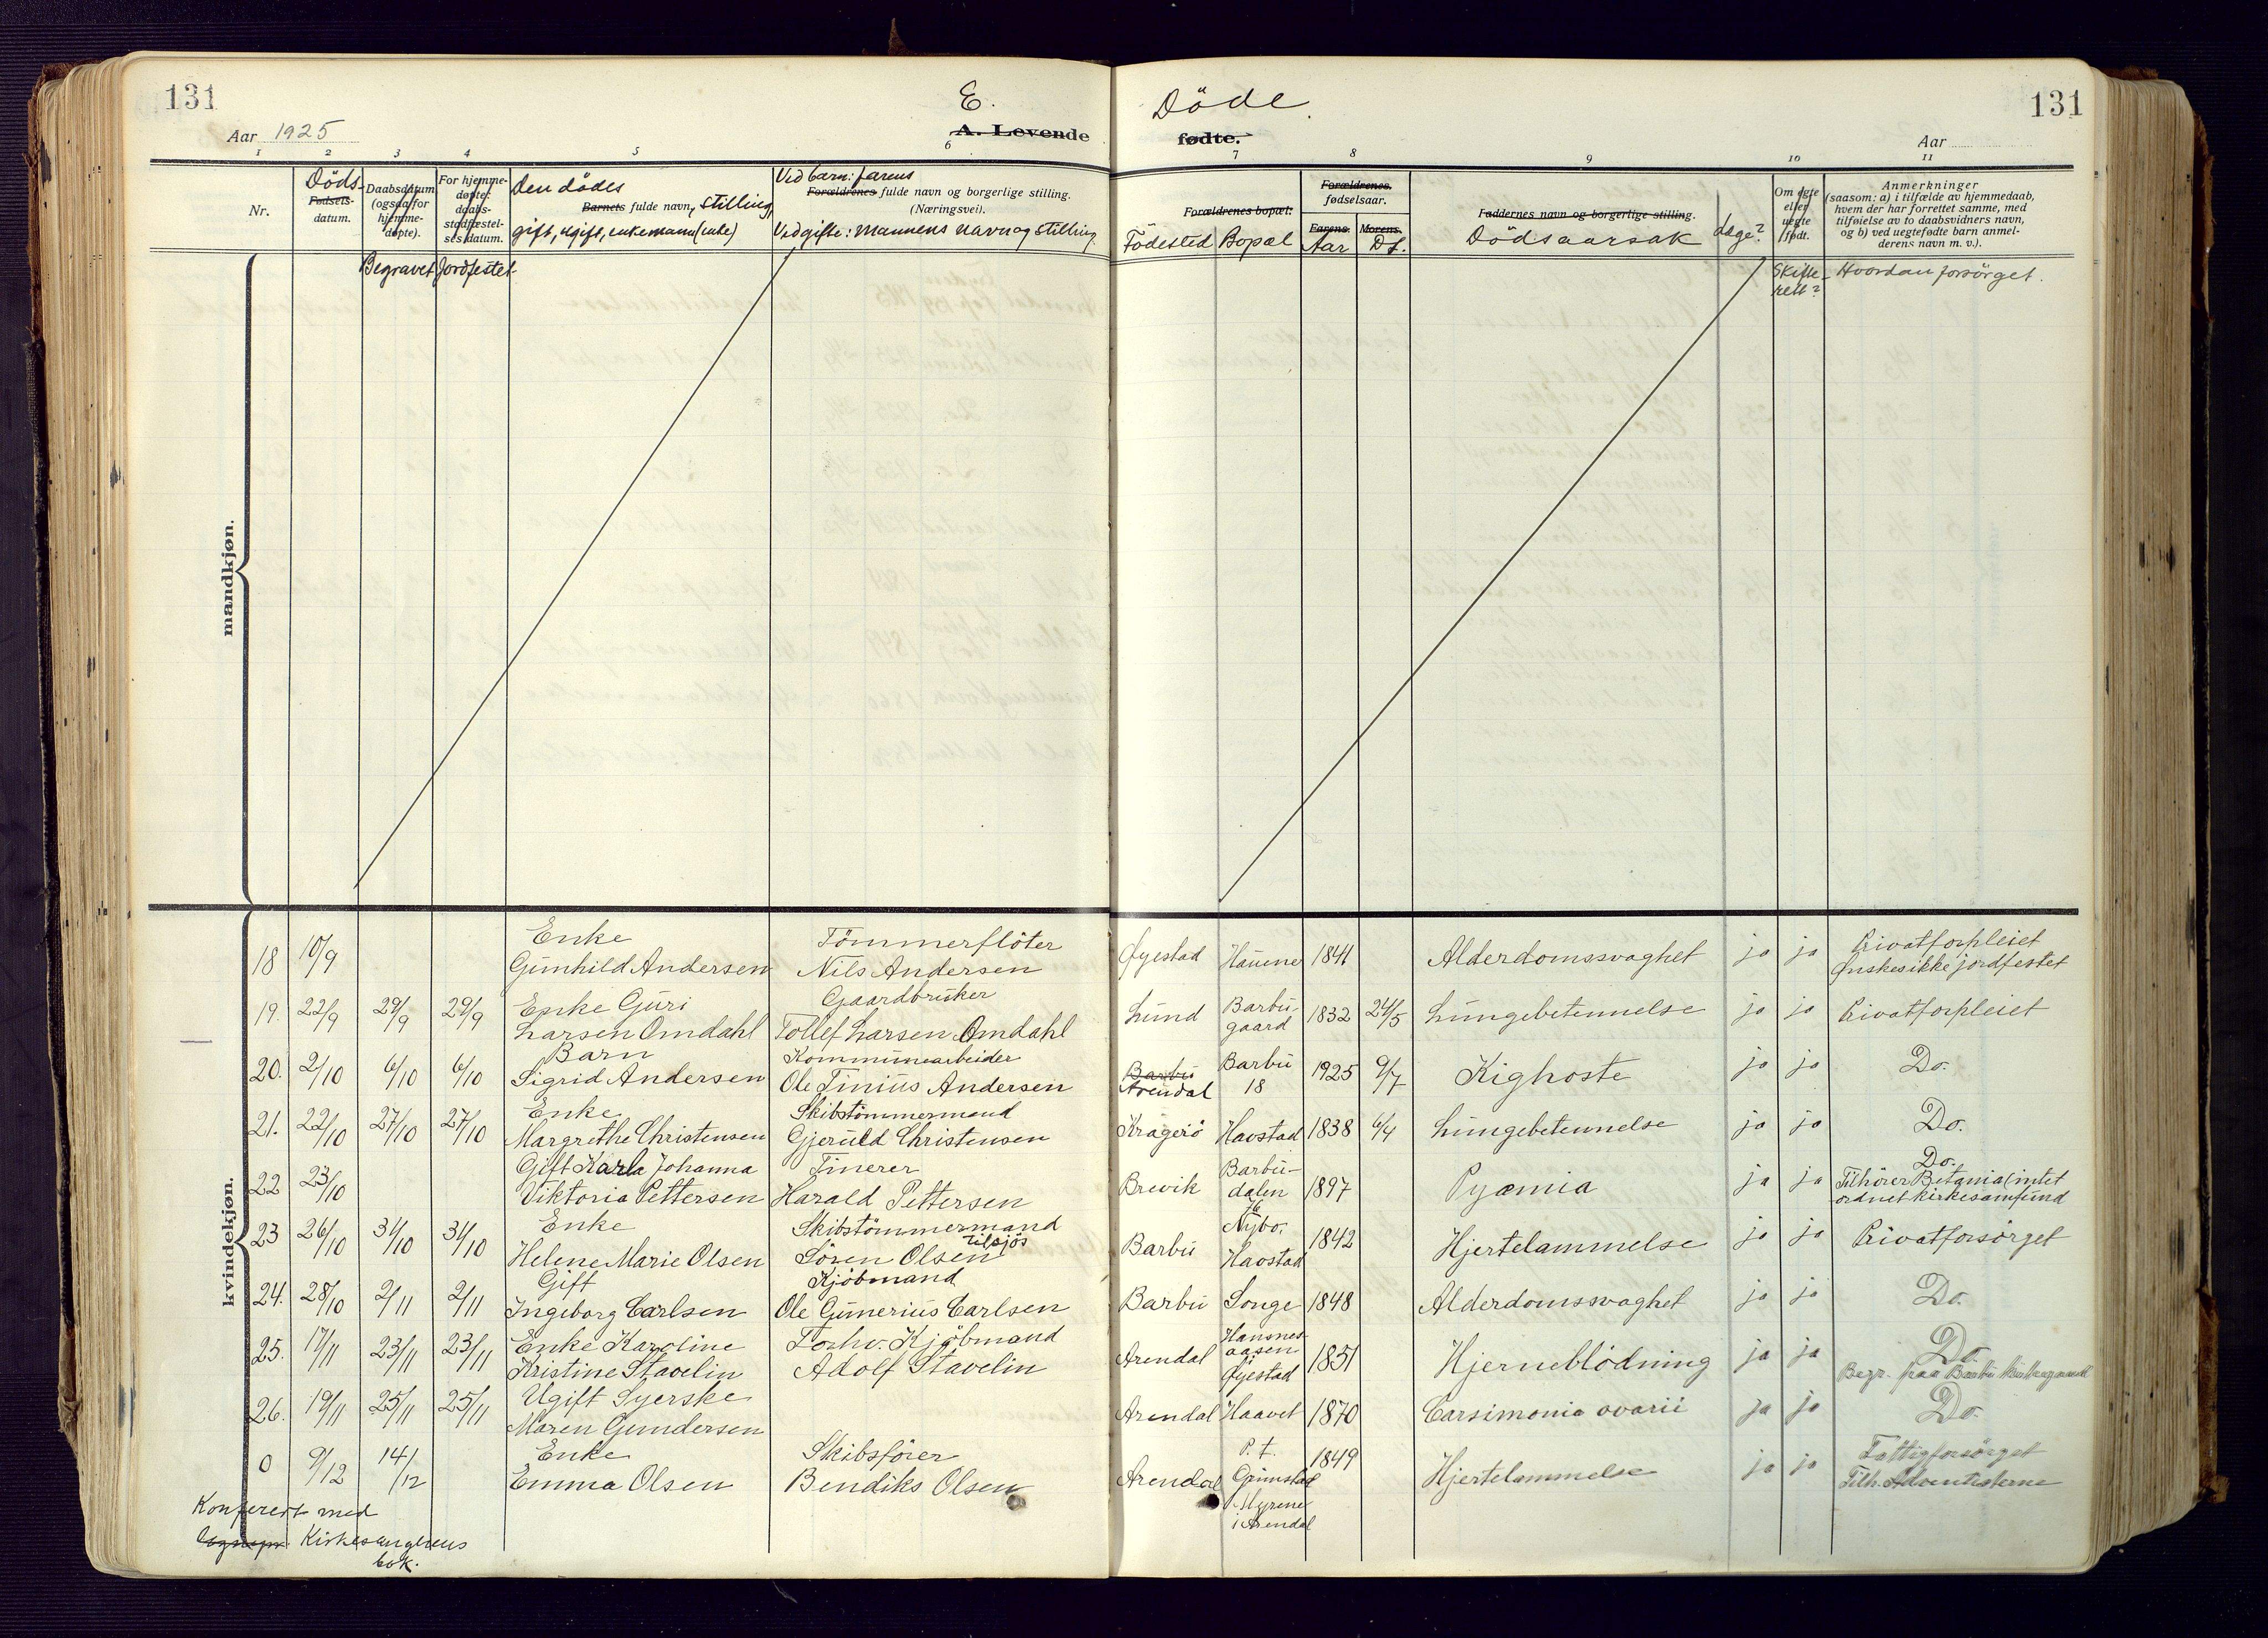 131
Aar 1925
E.
A. Levende
Döde.
fødte.
131
Aar
1 2 3 4 5 6 7 8 9 10 11
Nr.
Döds-
Fødsels-
datum.
Daabsdatum
(ogsaa for
hjemme-
døpte).
For hjemme-
døpte:
daabs-
stadfæstel-
sesdatum.
Den dödes
Barnets fulde navn, stilling,
gift, ugift, enkemann (enke)
Ved barn: farens
Forældrenes fulde navn og borgerlige stilling.
(Næringsvei).
Ved gifte: mannens navn og stilling.
Forældrenes bopæl.
Födested Bopæl
Forældrenes
fødselsaar.
Farens. Morens.
Aar Dt.
Faddernes navn og borgerlige stilling.
Dödsaarsak
Læge?
Om egte
eller
uegte
født.
Anmerkninger
(saasom: a) i tilfælde av hjemmedaab,
hvem der har forrettet samme, med
tilføielse av to daabsvidners navn,
og b) ved uegtefødte barn anmel-
derens navn m. v.).
Begravet Jordfestet
Skifte-
rett?
Hvordan forsörget.
mandkjøn.
kvindekjøn.
Enke Tömmerflöter Privatforpleiet
18 10/9 Gunhild Andersen Nils Andersen Øyestad Hauene 1841 Alderdomssvaghet ja ja Ønskes ikke jordfestet
Enke Guri Gaardbruker Barbu-
19. 22/9 29/9 29/9 Larsen Omdahl Tollef Larsen Omdahl Lund gaard 1832 24/5 Lungebetennelse ja ja Privatforpleiet
Barn Kommunearbeider Barbu Barbu
20. 2/10 6/10 6/10 Sigrid Andersen Ole Tinius Andersen Arendal 18 1925 9/7 Kighoste ja ja Do.
Enke Skibstömmermand
21. 22/10 27/10 27/10 Margrethe Christensen Gjeruld Christensen Kragerö Havstad 1838 6/4 Lungebetennelse ja ja Do.
Gift Karla Johanna Tinerer Barbu- Do.
22 23/10 Viktoria Pettersen Harald Pettersen Brevik dalen 1897 Pyæmia ja ja Tilhörer Betania (intet
ordnet kirkesamfund
Enke Skibstömmermand Nybo,
tilsjös
23 26/10 31/10 31/10 Helene Marie Olsen Sören Olsen Barbu Havstad 1842 Hjertelammelse ja ja Privatforsörget
Gift Kjöbmand
24. 28/10 2/11 2/11 Ingeborg Carlsen Ole Gunerius Carlsen Barbu Songe 1848 Alderdomssvaghet ja ja Do.
Enke Karoline Forhv. Kjöbmand Hansnes-
aasen Do
25. 17/11 23/11 23/11 Kristine Stavelin Adolf Stavelin Arendal Øjestad 1851 Hjerneblödning ja ja Begr. paa Barbu Kirkegaard
Ugift Syerske
26. 19/11 25/11 25/11 Maren Gundersen Arendal Haavet 1870 Carsimonia ovarii ja ja Do.
Enke Skibsförer P. t. Fattigforsörget
0 9/12 14/12 Emma Olsen Bendiks Olsen Arendal Grimstad 1849 Hjertelammelse ja ja Tilh. Adventisterne
Myrene
i Arendal
Konferert med
Kirkesangerens
bok.